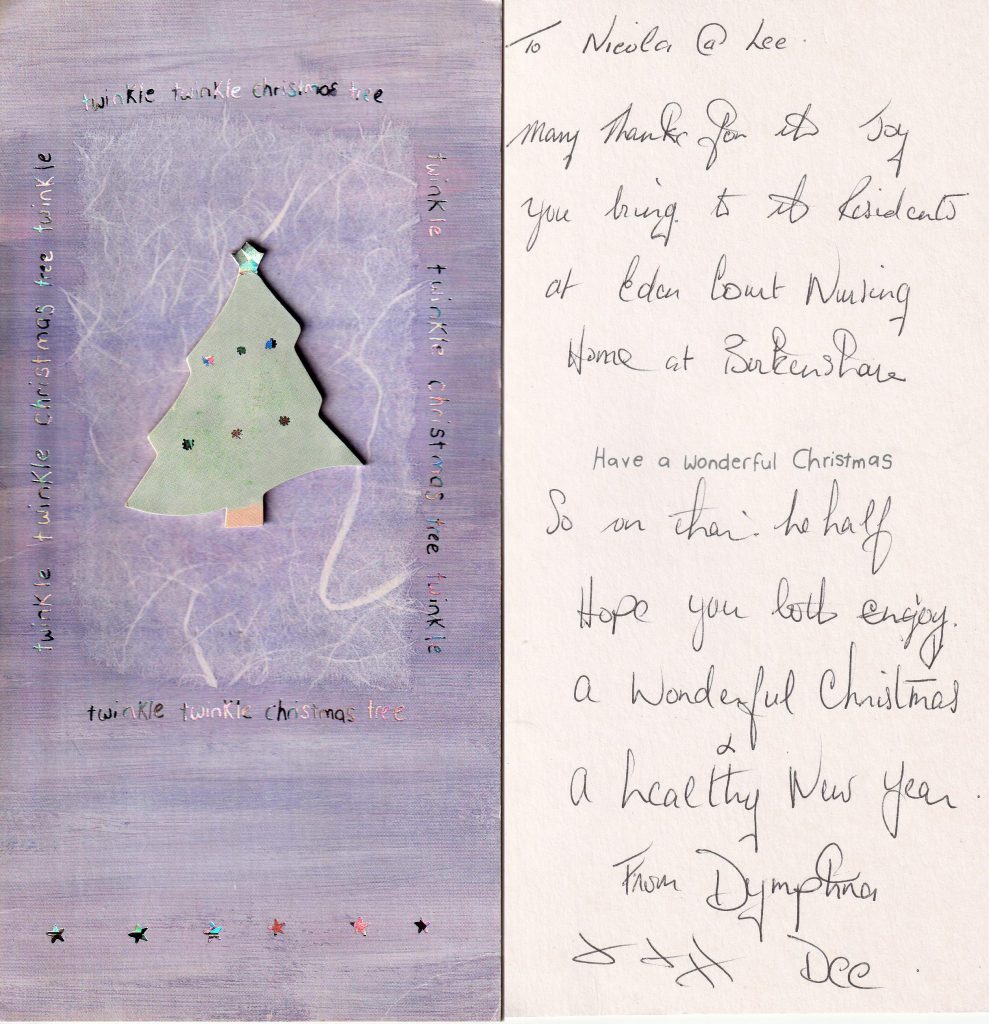 twinkle twinkle christmas tree
twinkle twinkle christmas tree twinkle
twinkle twinkle christmas tree twinkle
twinkle twinkle christmas tree
To Nicola @ Lee.
Many Thanks for the Joy
you bring to the Residents
at Eden Court Nursing
Home at Birkenshaw
Have a wonderful Christmas
So on their behalf
Hope you both enjoy.
a Wonderful Christmas
&
a healthy New Year.
From Dymphna
xxx Dee.